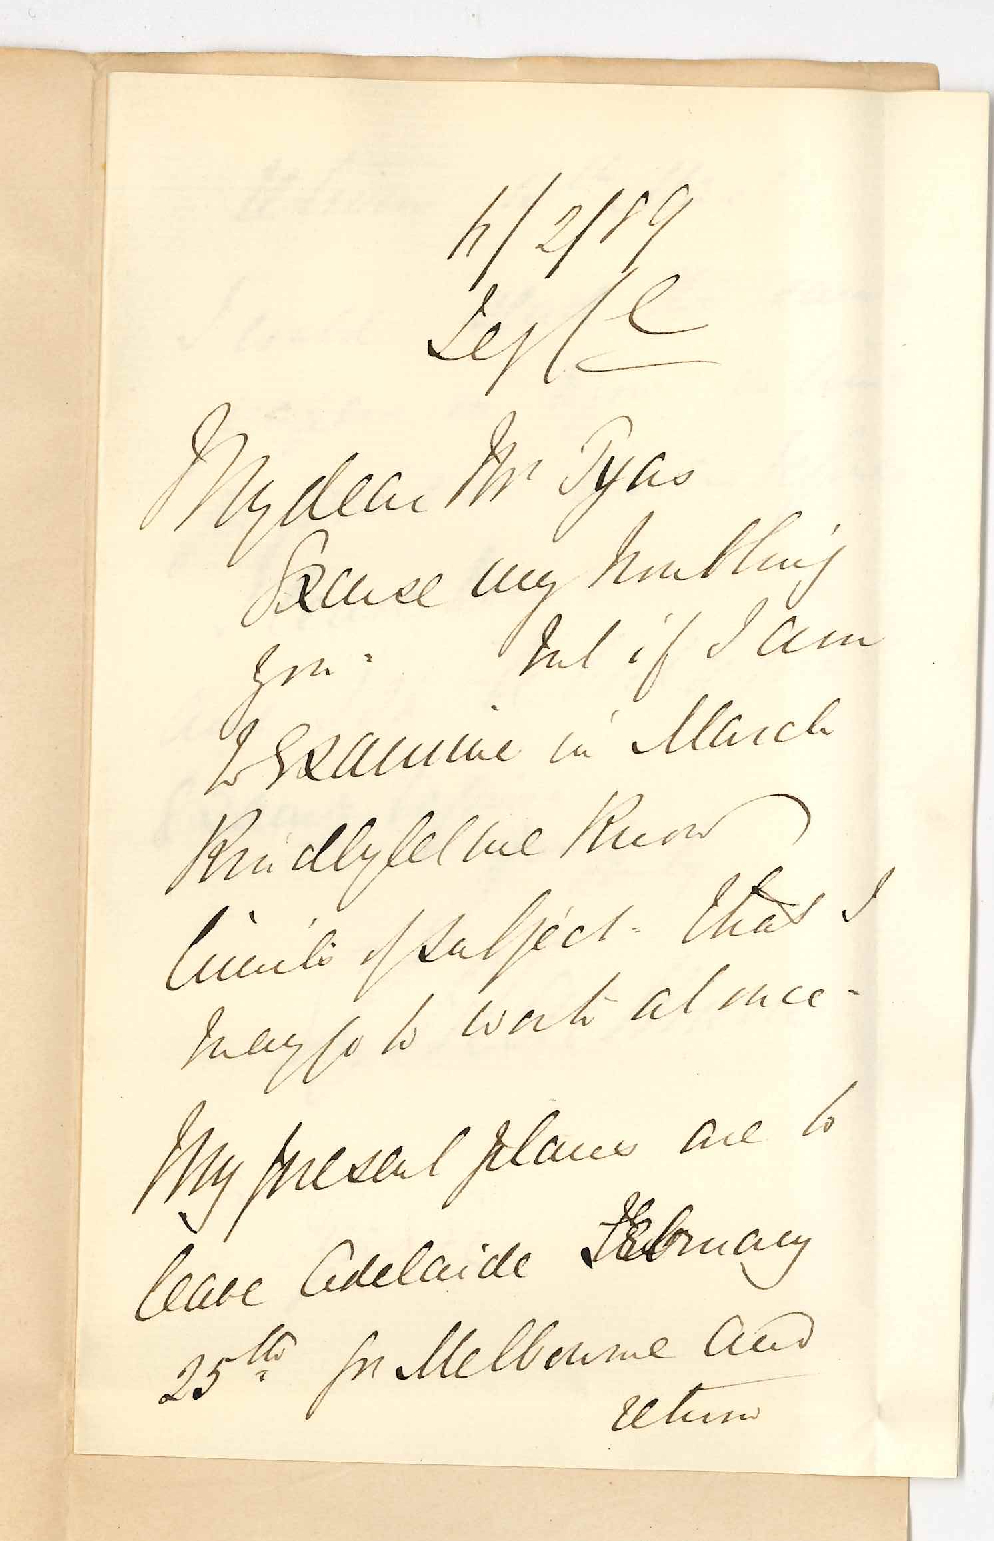 /2/89
My dear Mr Tyas
Excuse my troubling
you - but if I am
to Examine in March
Kindly let me know
limits of subject - that I
may go to work at once -
My present plans are to
leave Adelaide February
25th for Melbourne and
return